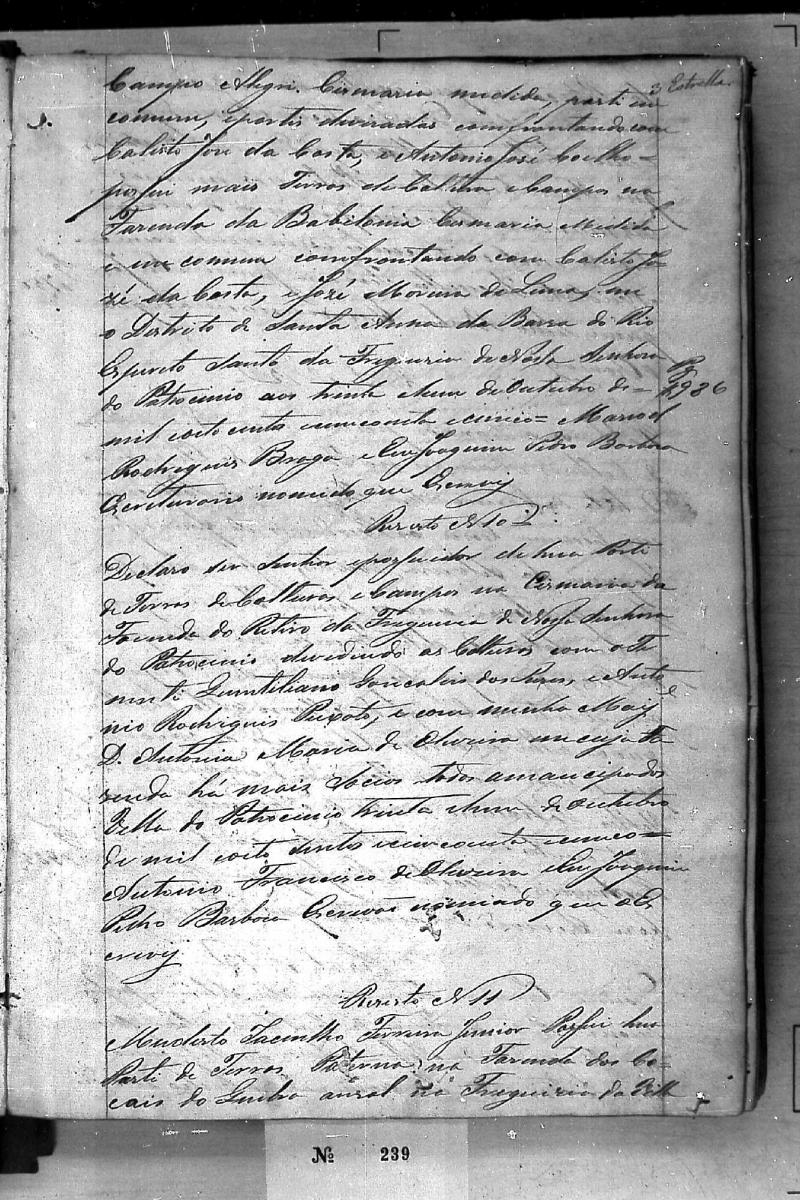 3 Estrella
Campo Alegri. Cismaria medida, parti em
comum, epartis devizadas comfrontando com
Calisto Jose da Costa, e Antonio José Coelho =
possui mais Terras de Coltura e Campos na
Fazenda da Babilonia Cismaria Medida
e em comum comfrontando com Calisto Jo-
zé da Costa, e José Moreira de Lima, em
o Destrito de Santa Anna da Barra do Rio
Espirito Santo da Freguezia de Nossa Senhora
do Patrocinio aos trinta ehum de Outubro de =
1936
mil oito centos cimcoenta ecinco = Manoel
Rodrigues Braga e Eu Joaquim Pedro Barboza
Escreturario nomeado que Escrevy
Rezisto N 10
Declaro ser Senhor epossuidor de hua Parte
de Terras de Colturas e Campos na Cismaria da
Fazenda do Retiro da Freguezia de Nossa Senhora
do Patrocinio devedindo as Colturas com o Te
nenti Quintiliano Goncalvis dos , e Anto
nio Rodriguis Peixoto, e com minha May
D. Antonia Maria de Oliveira em cuja Fa
zenda há mais Socios todos amancipados
Villa do Patrocinio trinta ehum de Outubro
de mil oito sentos e cimcoenta ecinco =
Antonio Francisco de Oliveira e Eu Joaquim
Pedro Barboza Escrivão nomeado que o Es
crevy
Rezisto N 11
Mudesto Jacintho Ferreira Junior Possui hua
Parte de Terras Paterna na Fazenda dos Co-
cais do na Freguizia da Vill
Nº 239